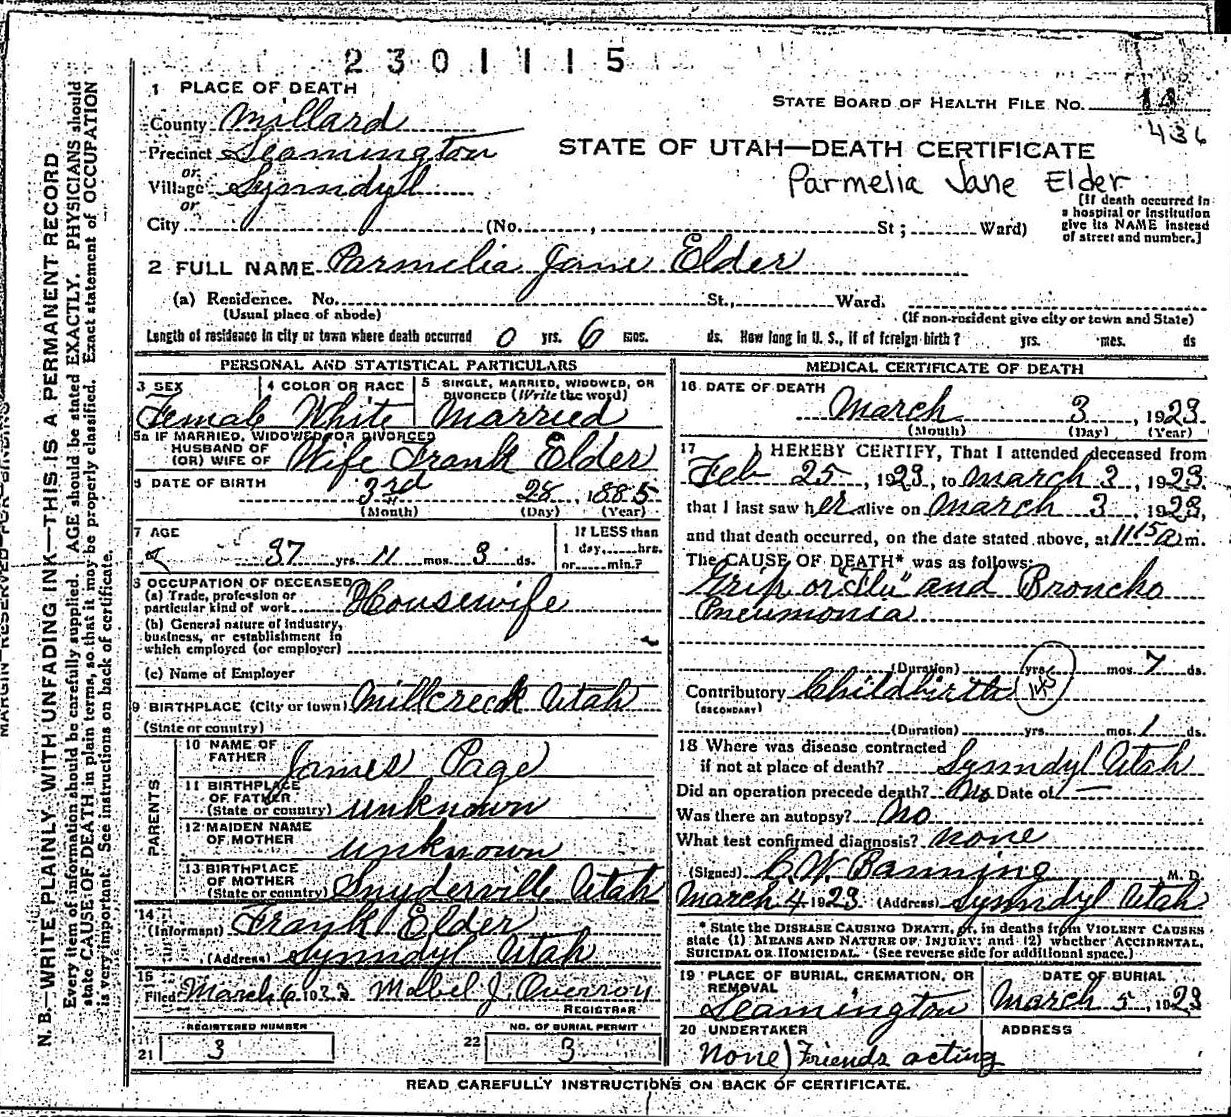 2301115
1 PLACE OF DEATH
STATE BOARD OF HEALTH FILE NO. 18
436
County Millard
Precinct Leamington
or
Village Lynndyl
or
STATE OF UTAH—DEATH CERTIFICATE
Parmelia Jane Elder
City (No. , St ; Ward)
[If death occurred in
a hospital or institution
give its NAME instead
of street and number.]
2 FULL NAME Parmelia Jane Elder
(a) Residence. No. St., Ward.
(Usual place of abode) (If non-resident give city or town and State)
Length of residence in city or town where death occurred 0 yrs. 6 mos. ds. How long in U. S., if of foreign birth? yrs. mos. ds
PERSONAL AND STATISTICAL PARTICULARS
3 SEX Female
4 COLOR OR RACE White
5 SINGLE, MARRIED, WIDOWED, OR
DIVORCED (Write the word)
Married
5a IF MARRIED, WIDOWED, OR DIVORCED
HUSBAND OF
(OR) WIFE OF Wife Frank Elder
6 DATE OF BIRTH 3rd 28, 1885
(Month) (Day) (Year)
7 AGE 37 yrs. 11 mos. 3 ds.
If LESS than
1 day, hrs.
or min.?
8 OCCUPATION OF DECEASED
(a) Trade, profession or
particular kind of work Housewife
(b) General nature of industry,
business, or establishment in
which employed (or employer)
(c) Name of Employer
9 BIRTHPLACE (City or town) Millcreek Utah
(State or country)
PARENTS
10 NAME OF
FATHER James Page
11 BIRTHPLACE
OF FATHER
(State or country) unknown
12 MAIDEN NAME
OF MOTHER unknown
13 BIRTHPLACE
OF MOTHER
(State or country) Snyderville Utah
14
(Informant) Frank Elder
(Address) Lynndyl Utah
15
Filed March 6 1923 Mabel J. Overson
REGISTRAR
REGISTERED NUMBER
21 3
NO. OF BURIAL PERMIT
22 3
MEDICAL CERTIFICATE OF DEATH
16 DATE OF DEATH
March 3, 1923
(Month) (Day) (Year)
17 I HEREBY CERTIFY, That I attended deceased from
Feb 25, 1923, to March 3, 1923
that I last saw her alive on March 3, 1923,
and that death occurred, on the date stated above, at 1115 a m.
The CAUSE OF DEATH* was as follows:
Grip or "Flu" and Broncho
Pneumonia
(Duration) yrs. mos. 7 ds.
Contributory Childbirth
(SECONDARY)
(Duration) yrs. mos. 1 ds.
18 Where was disease contracted
if not at place of death? Lynndyl Utah
Did an operation precede death? No Date of —
Was there an autopsy? No
What test confirmed diagnosis? none
(Signed) C. W. Banning M. D.
March 4 1923 (Address) Lynndyl Utah
* State the DISEASE CAUSING DEATH, or, in deaths from VIOLENT CAUSES
state (1) MEANS AND NATURE OF INJURY; and (2) whether ACCIDENTAL,
SUICIDAL OR HOMICIDAL. (See reverse side for additional space.)
19 PLACE OF BURIAL, CREMATION, OR
REMOVAL
Leamington
DATE OF BURIAL
March 5, 1923
20 UNDERTAKER ADDRESS
None) Friends acting
READ CAREFULLY INSTRUCTIONS ON BACK OF CERTIFICATE.
MARGIN RESERVED FOR BINDING
N. B.—WRITE PLAINLY, WITH UNFADING INK—THIS IS A PERMANENT RECORD
Every item of information should be carefully supplied. AGE should be stated EXACTLY. PHYSICIANS should
state CAUSE OF DEATH in plain terms, so that it may be properly classified. Exact statement of OCCUPATION
is very important. See instructions on back of certificate.